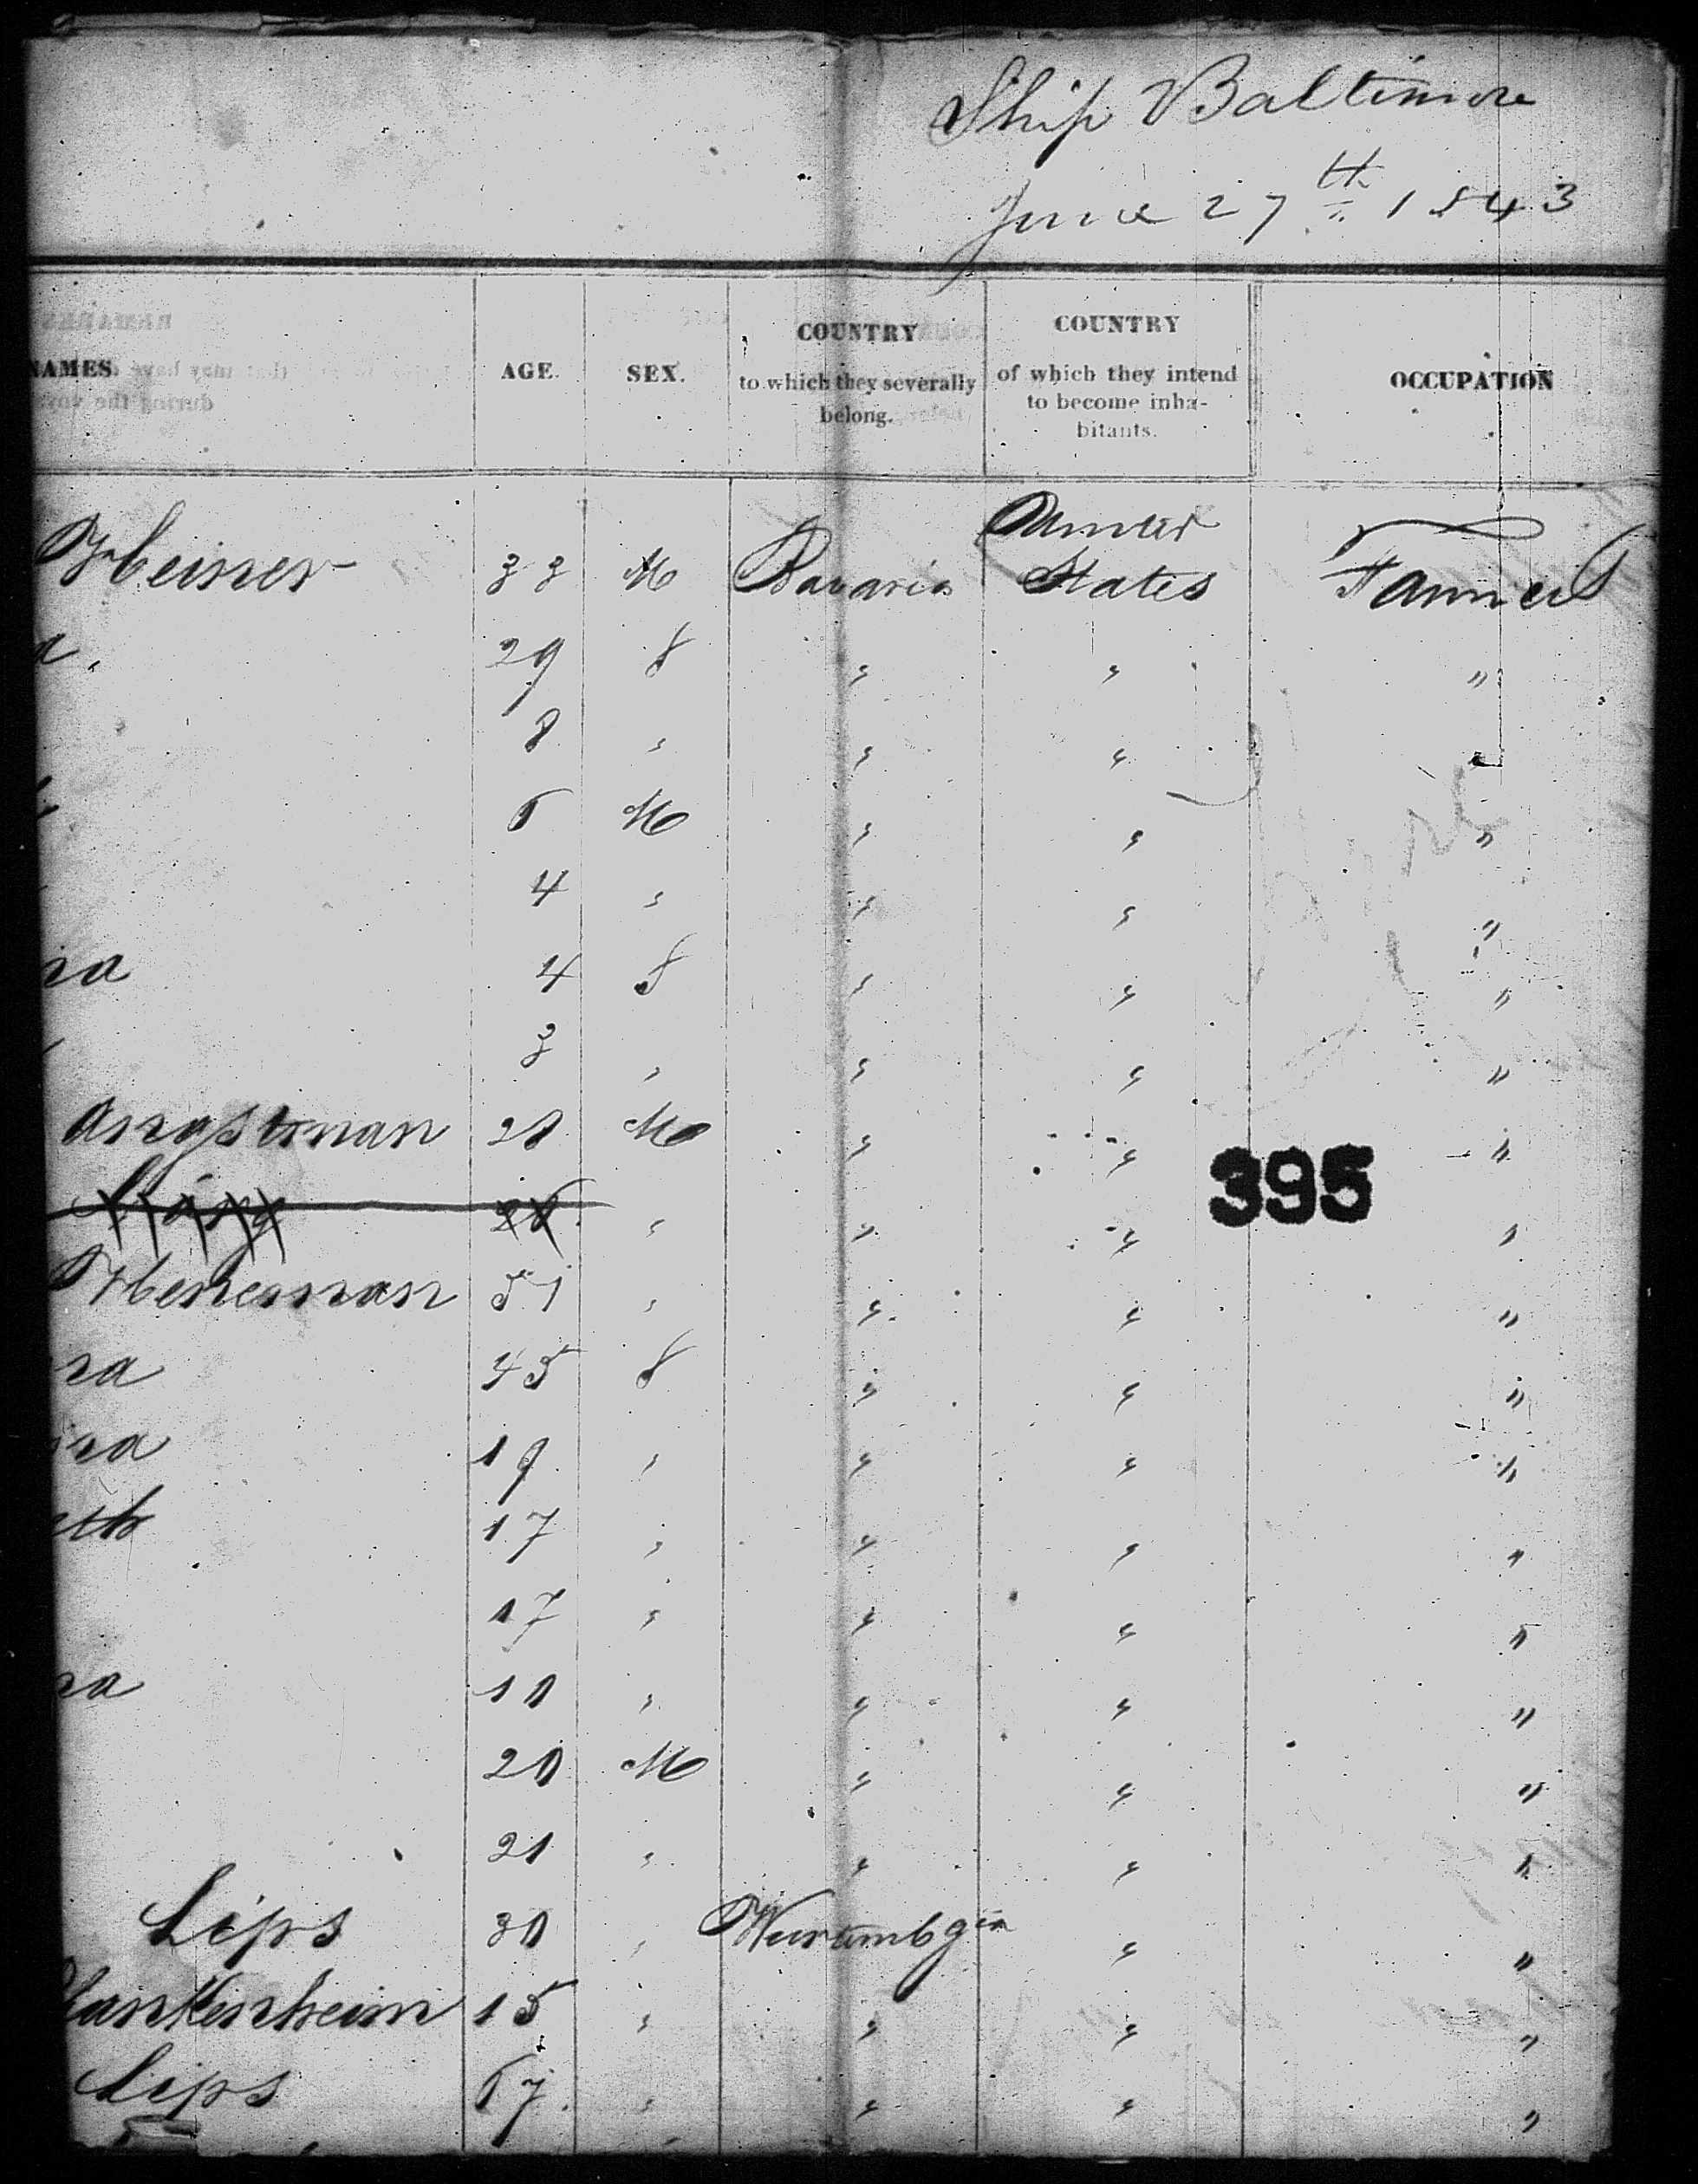 Ship Baltimore
June 27th 1843
NAMES. AGE. SEX. COUNTRY to which they severally belong. COUNTRY of which they intend to become inhabitants. OCCUPATION
Heiner 33 M Bavaria United States Farmers
a. 29 f " " "
8 " " " "
6 M " " "
4 " " " "
na 4 f " " "
3 " " " "
Angstman 28 M " " "
395
" " " "
Heneman 51 " " " "
ra 45 f " " "
ina 19 " " " "
eth 17 " " " "
17 " " " "
na 10 " " " "
20 M " " "
21 " " " "
Lips 30 " " "
lankenheim 15 " " " "
Lips 67 " " " "